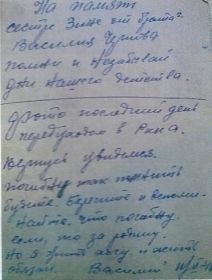 На память
сестре Зине от брата
Василия
помни и незабывай
дни нашего детства.
Фото последний день
перед уходом в
Вернусь увидимся.
погибну так
будете берегите и вспоми-
найте. что погибну
если, то за родину.
Но я хочу и жить
Василий